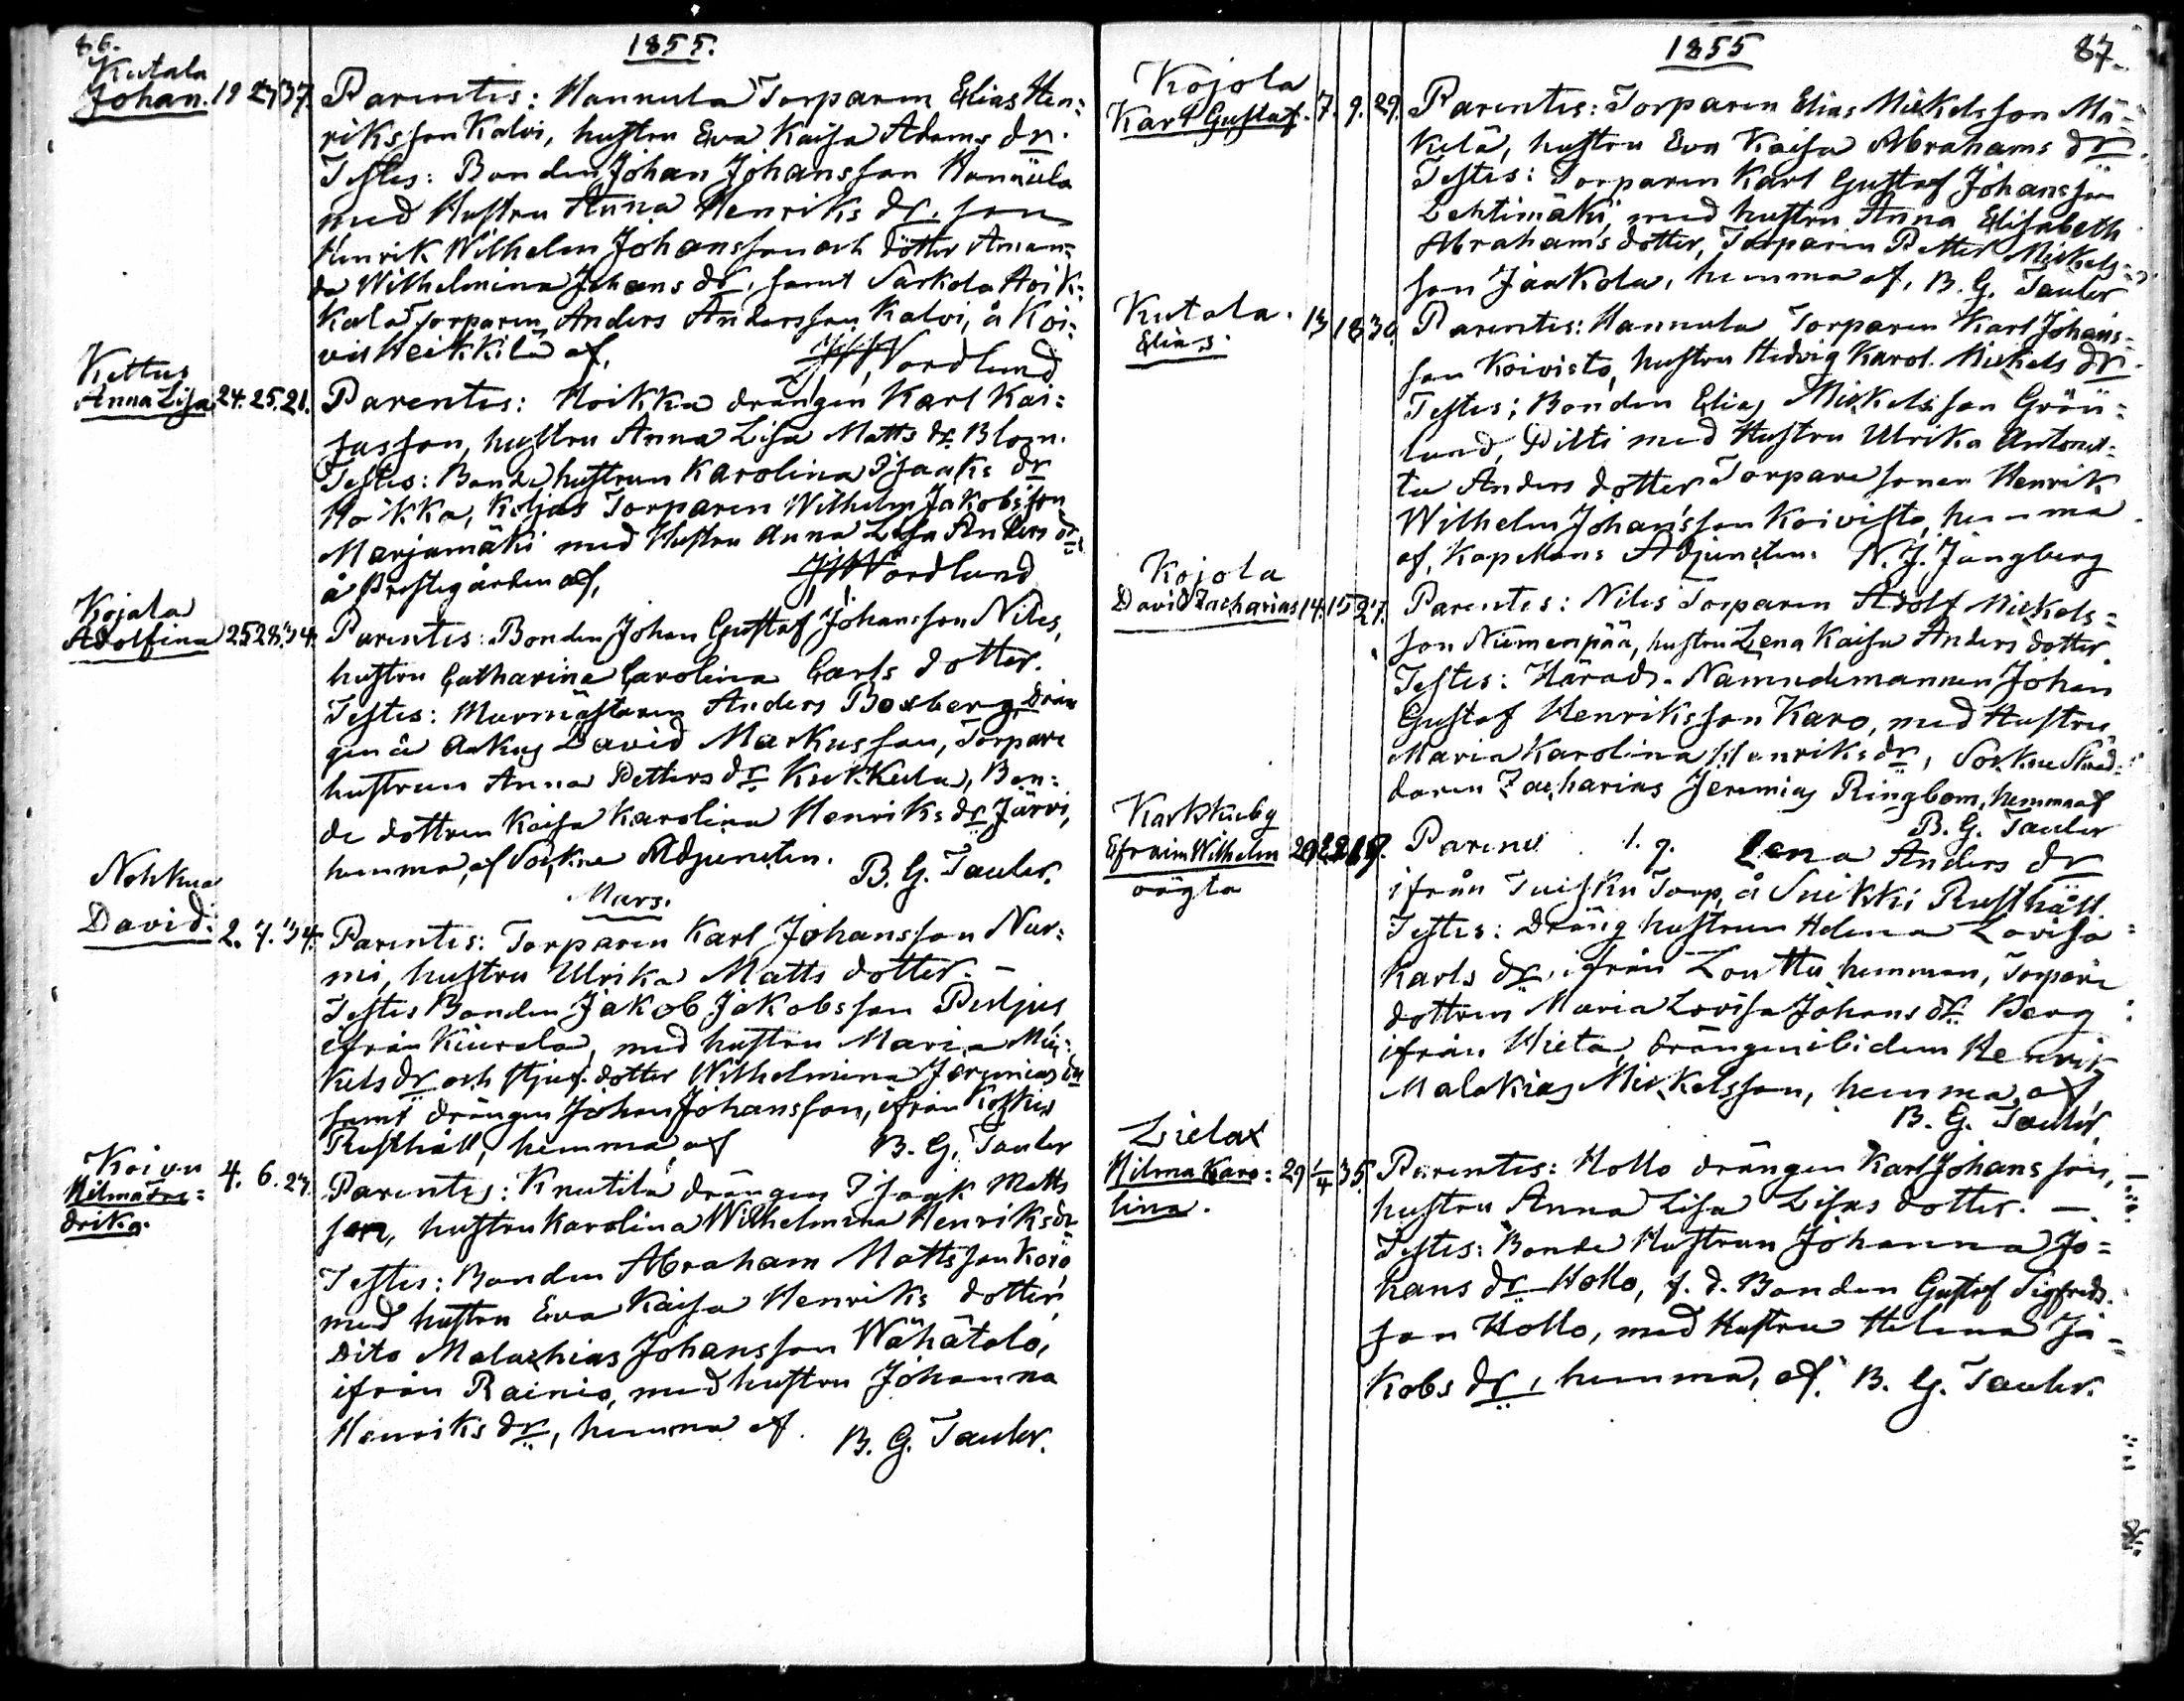 86.
1855.
Kutala
Johan. 19 27 37. Parentes: Hannula Torparen Elias Hen=
riksson Kalvi, hustru Eva Kaisa Adams dr.
Testes: Bonden Johan Johansson Hannula
med Hustru Anna Henriks dr. son
Henrik Wilhelm Johansson och dotter Aman=
da Wilhelmina Johans dr, samt Sarkola Hoik=
kala Torparen Anders Andersson Kalvi, å Koi=
vu Heikkilä af, Nordlund
Kettus
Anna Lisa 24. 25. 21. Parentes: Hoikka drängen Karl Kai=
jasson, hustru Anna Lisa Matts dr Blom.
Testes: Bonde hustrun Karolina Isaaks dr
Hoikka, Keljas Torparen Wilhelm Jakobsson
Marjamäki med Hustru Anna Lisa Anders dr
å Prestegården af, Nordlund
Kojola
Adolfina 25 28. 34. Parentes: Bonden Johan Gustaf Johansson Niles,
hustru Catharina Carolina Carls dotter.
Testes: Murmästaren Anders Boxberg, Drän
gen å David Markusson, Torpare
hustrun Anna Petters dr Kukkula, Bon=
de dottren Kaisa Karolina Henriks dr Järvi,
hemma, af Sockne Adjuncten. B. G. Tauler.
Mars.
Nohkua
David. 2. 7. 34. Parentes: Torparen Karl Johansson Nur=
mi, hustru Ulrika Matts dotter. –
Testes Bonden Jakob Jakobsson Peljus
ifrån Kiurala, med hustru Maria Mic=
kels dr och stjuf-dotter Wilhelmina Jeremias dr
samt drängen Johan Johansson, ifrån Koskis
Rusthåll, hemma af B. G. Tauler
Koivu
Hilma Fre=
drika. 4. 6. 27. Parentes: Knutila drängen Isaak Matts
son, hustru Karolina Wilhelmina Henriks dr
Testes: Bonden Abraham Mattsson Koro
med hustru Eva Kaisa Henriks dotter,
Dito Malachias Johansson Wähätalo,
ifrån Rainio, med hustru Johanna
Henriks dr, hemma af B. G. Tauler.
1855 87.
Kojola
Karl Gustaf. 7. 9. 29. Parentes: Torparen Elias Mickelsson Mä=
kelä, hustru Eva Kaisa Abrahams dr.
Testes: Torparen Karl Gustaf Johansson
Lehtimäki, med hustru Anna Elisabeth
Abrahams dotter, Torparen Petter Mickels=
son Jaakola, hemma af, B. G. Tauler
Kutala.
Elias. 13 18 30. Parentes: Hannula Torparen Karl Johans=
son Koivisto, hustru Hedvig Karol. Mickels dr.
Testes: Bonden Elias Mickelsson Grön=
lund, Piltti med Hustru Ulrika Antonet=
ta Anders dotter Torpare sonen Henrik
Wilhelm Johansson Koivisto, hemma
af, Kapellans Adjuncten: N. J. Jungberg
Kojola
David Zacharias 14. 15 27. Parentes: Niles Torparen Adolf Mickels=
son Niemenpää, hustru Lena Kaisa Anders dotter
Testes: Härads-Nämndemannen Johan
Gustaf Henriksson Karo, med Hustru
Maria Karolina Henriks dr, Sockne Skräd=
daren Zacharias Jeremias Ringbom, hemma af
B. G. Tauler
Karkkueby
Efraim Wilhelm
oägta Lena Anders dr
ifrån Torp, å Suikki Rusthåll
Testes: Dräng hustrun Helena Lovisa
Karls dr, ifrån Louttu hemman, Torpare
dottren Maria Lovisa Johans dr Berg
ifrån Hieta, drängen ibidem Henrik
Malakias Mickelsson, hemma, af
B. G. Tauler.
Lielax
Hilma Karo=
lina. 29 1/4 35. Parentes: Hollo drängen Karl Johansson,
hustru Anna Lisa Lisas dotter. –
Testes: Bonde Hustrun Johanna Jo=
hans dr Hollo, f. d. Bonden Gustaf Sigfrids
son Hollo, med Hustru Helena Ja=
kobs dr, hemma, af. B. G. Tauler.